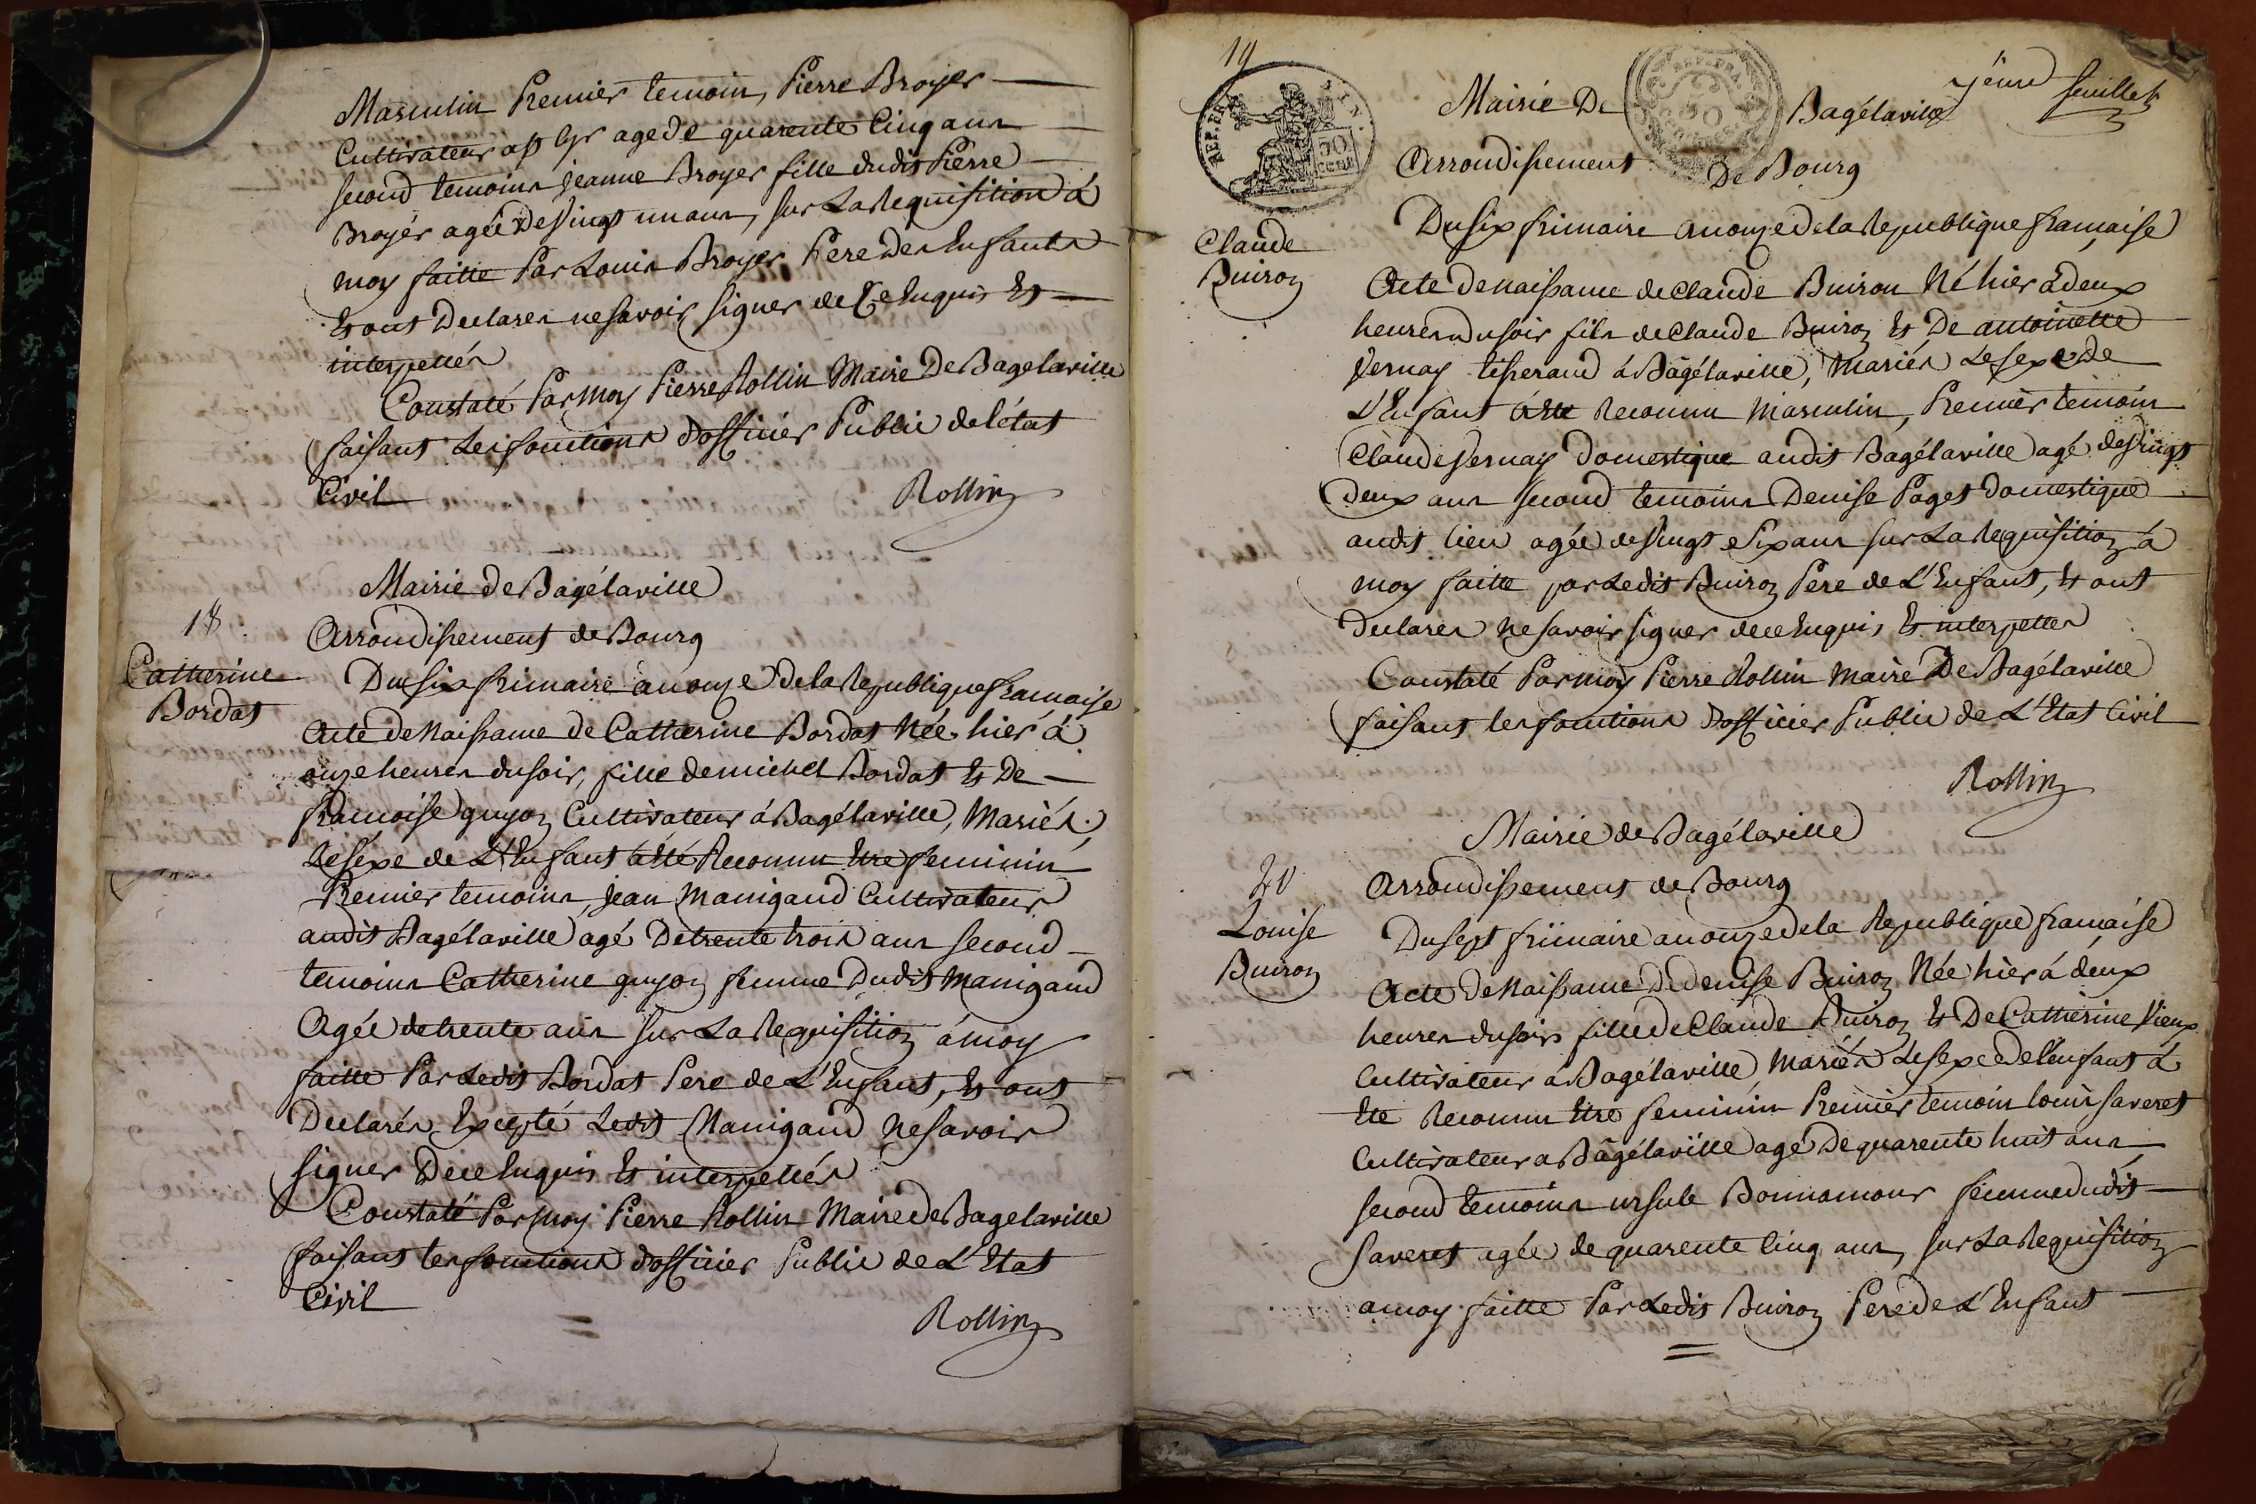 Masculin Premier temoin, Pierre Broyer
Cultivateur a st Cyr agé de quarente Cinq ans
second temoins jeanne Broyer fille dudit Pierre
Broyer agée de Vingt un ans, sur La Requisition á
moy faitte Par Louis Broyer Pere des Enfants
Et ont Declarés ne savoir signer de Ce Enquis Et
interpellés
Constaté Par moy Pierre Rollin Maire De Bagelaville
faisant Les fonctions d'officier Public de l'état
Civil
Rollin
Mairie de Bagélaville
18
Arrondissement de Bourg
Catherine
Bordat
Du six frimaire an onze de la Republique francaise
Acte de Naissance de Catherine Bordat Née hier á
onze heures du soir, fille de michel Bordat Et De
francoise guyon Cultivateur á Bagélaville, Mariés,
Le sexe de L'Enfant á Eté Reconnu Etre feminin
Premier temoins, Jean Manigaud Cultivateur
audit Bagélaville agé De trente trois ans second
temoins Catherine guyon femme Dudit Manigaud
Agée de trente ans sur La Requisition á moy
faitte Par Ledit Bordat Pere de L'Enfant, Et ont
Declarés Excepté Ledit Manigaud Ne savoir
signer De ce Enquis Et interpellés
Constaté Par moy Pierre Rollin Maire de Bagelaville
faisant les fonctions d'officier Public de L'Etat
Civil
Rollin
19
REP. FRA.
50
CENT.
REP. FRA.
50
jéme feuillet
Mairie De Bagélaville
Arrondissement De Bourg
Claude
Buiron
Du six frimaire an onze de la Republique francaise
Acte de Naissance de Claude Buiron Né hier á deux
heures du soir fils de Claude Buiron Et De antoinette
Vernay tisserand á Bagélaville, Mariés Le sexe de
L'Enfant á Eté Reconnu Masculin, Premier temoin
Claude Vernay Domestique audit Bagélaville agé de Vingt
Deux ans second temoins Denise Paget Domestique
audit lieu agée de Vingt e Six ans sur La Requisition á
moy faitte par Ledit Buiron Pere de L'Enfant, Et ont
Declarés Ne savoir signer de ce Enquis Et interpellés
Constaté Par moy Pierre Rollin Maire De Bagélaville
faisant les fonctions d'officier Public de L'Etat Civil
Rollin
Mairie de Bagélaville
20
Arrondissement de Bourg
Louise
Buiron
Du sept frimaire an onze de la Republique francaise
Acte de Naissance de denise Buiron Née hier á deux
heures du soir fille de Claude Buiron Et De Catherine Vieux
Cultivateur á Bagélaville Mariés Le sexe de l'enfant á
Eté Reconnu Etre feminin Premier temoin louis saveret
Cultivateur a Bagélaville agé De quarente huit ans
second temoins ursule Bonnamour femme dudit
saveret agée de quarente Cinq ans, sur La Requisition
a moy faitte Par Ledit Buiron Pere de L'Enfant